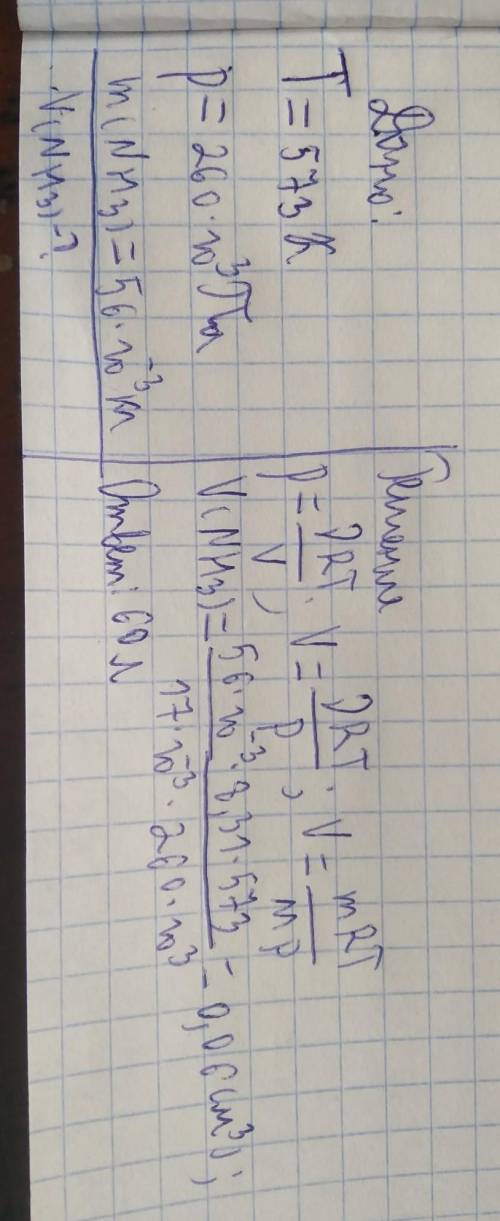 Дано:
T = 573 K
p = 260·10³ Па
m(NH₃) = 56·10⁻³ кг
V(NH₃)-?
Решение
p = νRT/V, V = νRT/p, V = mRT/Mp
V(NH₃) = 56·10⁻³·8,31·573/17·10⁻³·260·10³ = 0,06 (м³);
Ответ: 60 л